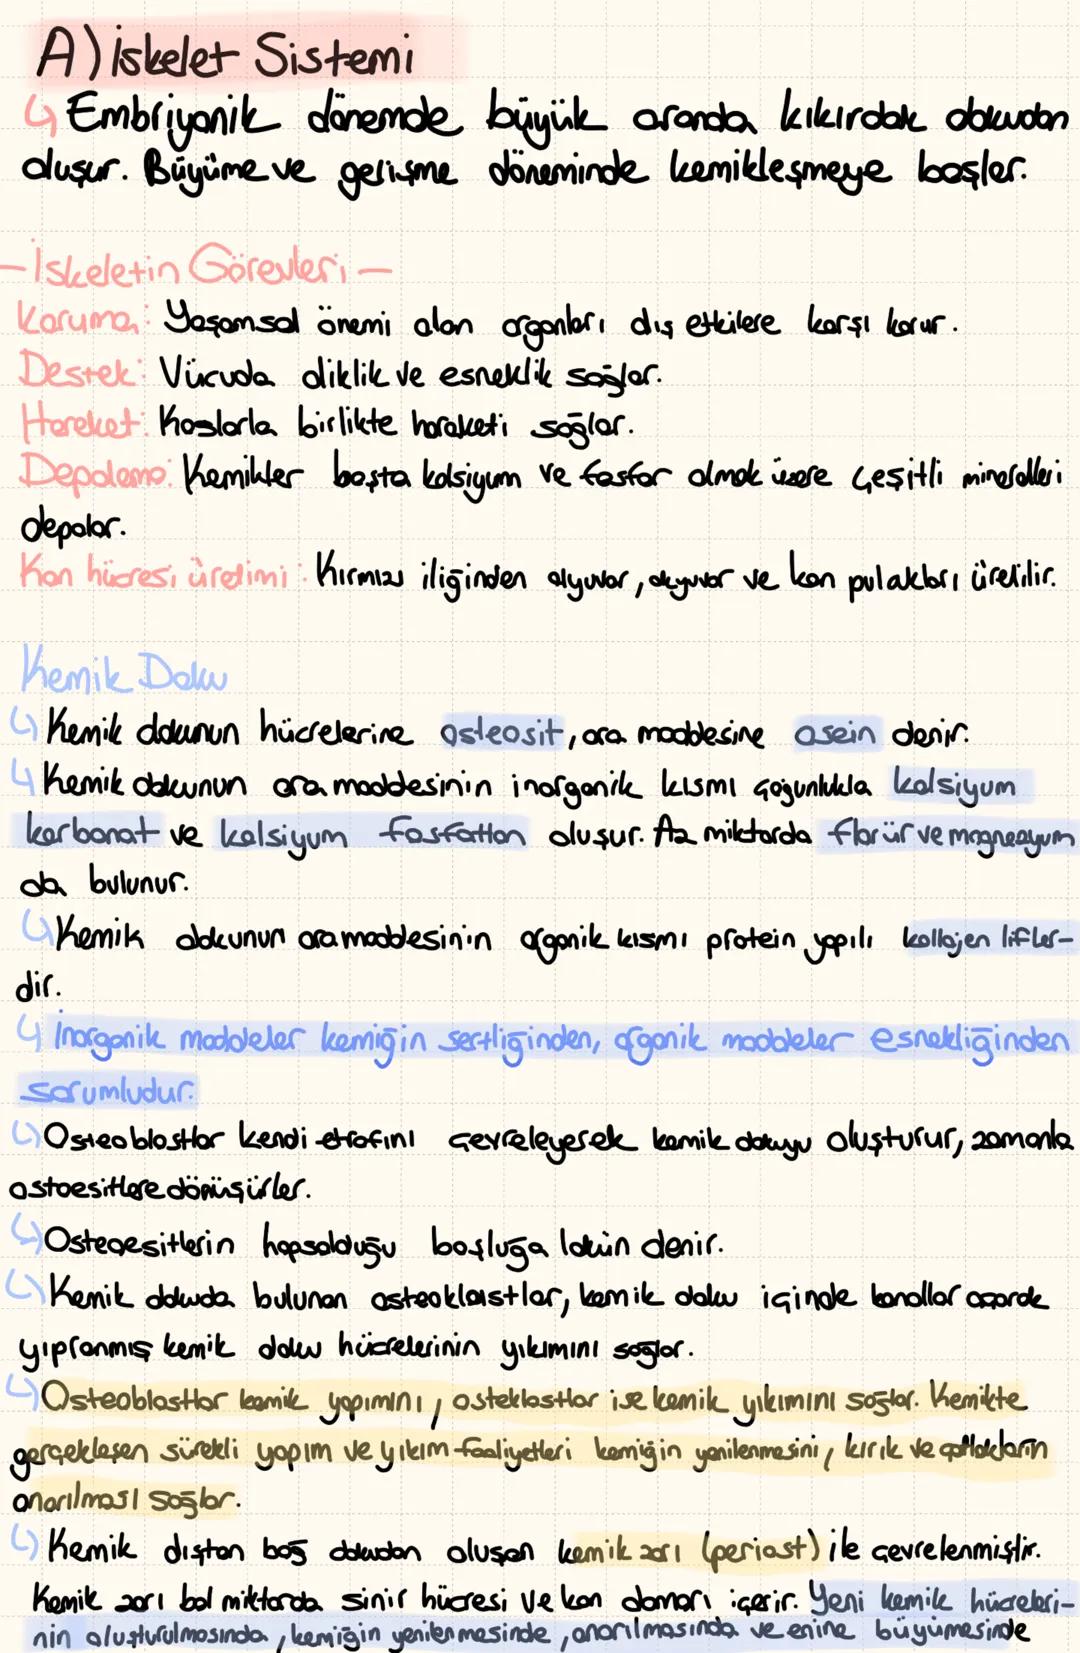 A) İskelet Sistemi
↳ Embriyonik dönemde büyük oranda kıkırdak dokudan
oluşur. Büyüme ve gelişme döneminde kemikleşmeye başlar.
- İskeletin Görevleri -
Koruma: Yaşamsal önemi olan organları dış etkilere karşı korur.
Destek: Vücuda diklik ve esneklik sağlar.
Hareket: Kaslarla birlikte haraketi sağlar.
Depolama: Kemikler başta kalsiyum ve fosfor olmak üzere çeşitli mineralleri
depolar.
Kan hücresi üretimi: Kırmızı iliğinden alyuvar, akyuvar ve kan pulakları üretilir.
Kemik Doku
↳ Kemik dokunun hücrelerine osteosit, ara maddesine osein denir.
↳ Kemik dokunun ara maddesinin inorganik kısmı çoğunlukla kalsiyum
karbonat ve kalsiyum fosfattan oluşur. Az miktarda florür ve magnezyum
da bulunur.
↳ Kemik dokunun ara maddesinin organik kısmı protein yapılı kollajen lifler-
dir.
↳ İnorganik maddeler kemiğin sertliğinden, organik maddeler esnekliğinden
sorumludur.
↳ Osteoblastlar kendi etrafını çevreleyerek kemik dokuyu oluşturur, zamanla
ostoesitlere dönüşürler.
↳ Osteoesitlerin hapsolduğu boşluğa lakün denir.
↳ Kemik dokuda bulunan osteoklastlar, kemik doku içinde kanallar açarak
yıpranmış kemik doku hücrelerinin yıkımını sağlar.
↳ Osteoblastlar kemik yapımını, osteklastlar ise kemik yıkımını sağlar. Kemikte
gerçekleşen sürekli yapım ve yıkım faaliyetleri kemiğin yenilenmesini, kırık ve çatlakların
onarılması sağlar.
↳ Kemik dıştan bağ dokudan oluşan kemik zarı (periost) ile çevrelenmiştir.
Kemik zarı bol miktarda sinir hücresi ve kan damarı içerir. Yeni kemik hücreleri-
nin oluşturulmasında, kemiğin yenilenmesinde, onarılmasında ve enine büyümesinde